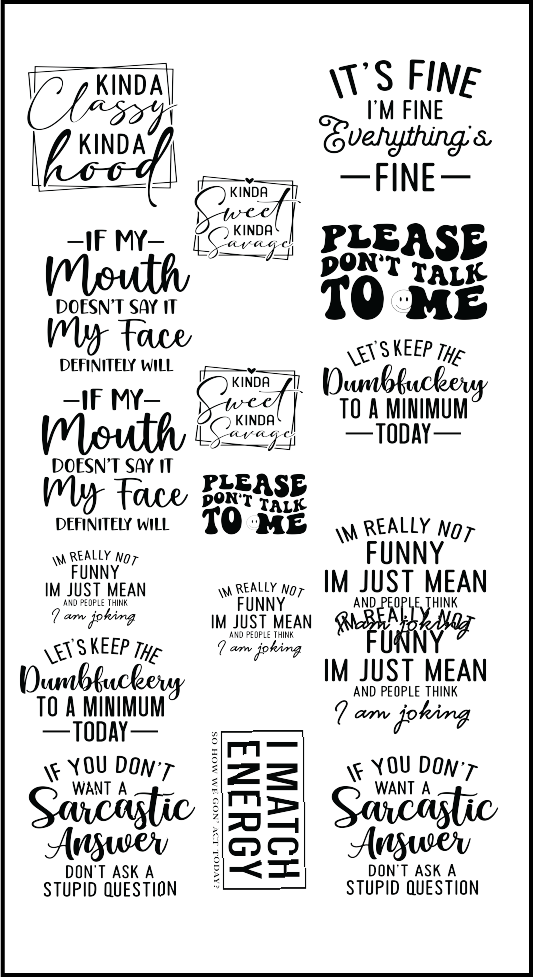 KINDA
Classy
KINDA
hood
IT'S FINE
I'M FINE
Everything's
FINE
KINDA
Sweet
KINDA
Savage
IF MY
Mouth
DOESN'T SAY IT
My Face
DEFINITELY WILL
PLEASE
DON'T TALK
TO ME
LET'S KEEP THE
Dumbfuckery
TO A MINIMUM
TODAY
IF MY
Mouth
DOESN'T SAY IT
My Face
DEFINITELY WILL
KINDA
Sweet
KINDA
Savage
PLEASE
DON'T TALK
TO ME
IM REALLY NOT
FUNNY
IM JUST MEAN
AND PEOPLE THINK
I am joking
IM REALLY NOT
FUNNY
IM JUST MEAN
AND PEOPLE THINK
I am joking
IM REALLY NOT
FUNNY
IM JUST MEAN
AND PEOPLE THINK
I am joking
IM REALLY NOT
FUNNY
IM JUST MEAN
AND PEOPLE THINK
I am joking
LET'S KEEP THE
Dumbfuckery
TO A MINIMUM
TODAY
IF YOU DON'T
WANT A
Sarcastic
Answer
DON'T ASK A
STUPID QUESTION
I MATCH
ENERGY
SO HOW WE GON' ACT TODAY?
IF YOU DON'T
WANT A
Sarcastic
Answer
DON'T ASK A
STUPID QUESTION